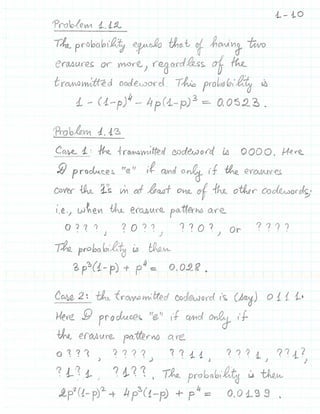 1-10
Problem 1.12
The probability equals that of having two
erasures or more, regardless of the
transmitted codeword. This probability is
1 - (1-p)⁴ - 4p(1-p)³ = 0.0523.
Problem 1.13
Case 1: the transmitted codeword is 0000. Here
𝒟 produces "e" if and only if the erasures
cover the 1's in at least one of the other codewords;
i.e., when the erasure patterns are
0???, ?0??, ??0?, or ????
The probability is then
3p³(1-p) + p⁴ = 0.028.
Case 2: the transmitted codeword is (say) 0111.
Here 𝒟 produces "e" if and only if
the erasure patterns are
0???, ????, ??11, ???1, ??1?,
?1?1, ?1??. The probability is then
2p²(1-p)² + 4p³(1-p) + p⁴ = 0.0199.